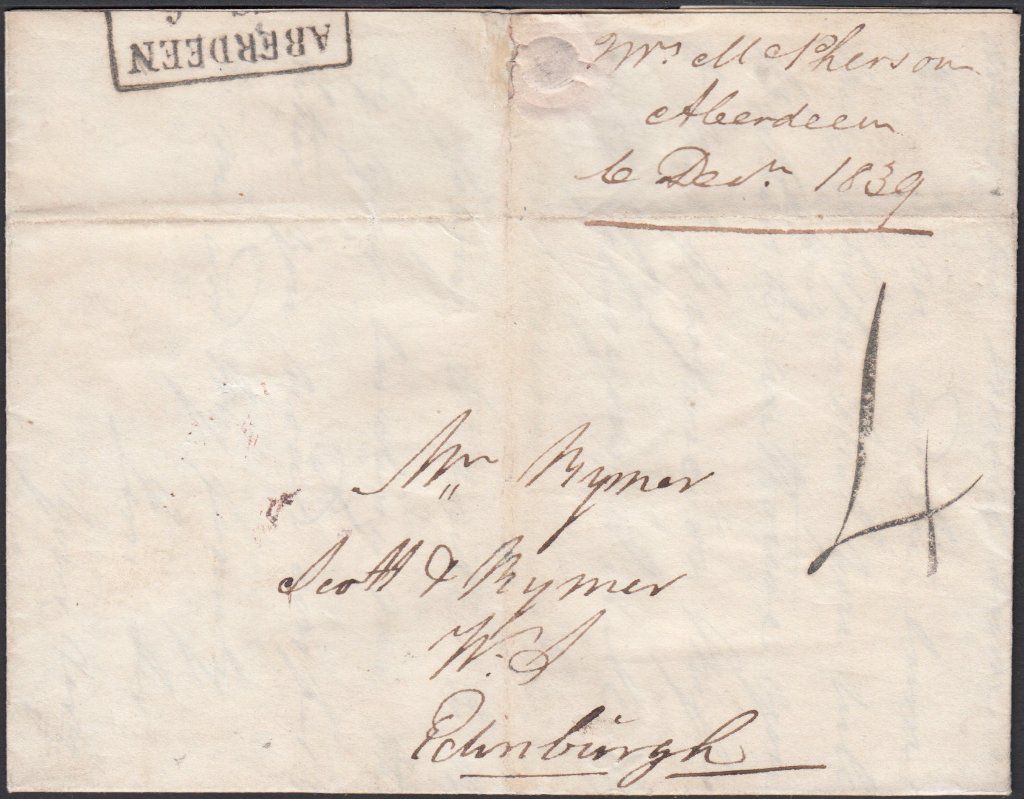 ABERDEEN
Mrs McPherson
Aberdeen
6 Decr. 1839
4
Mr Rymer
Scott & Rymer
W. S
Edinburgh